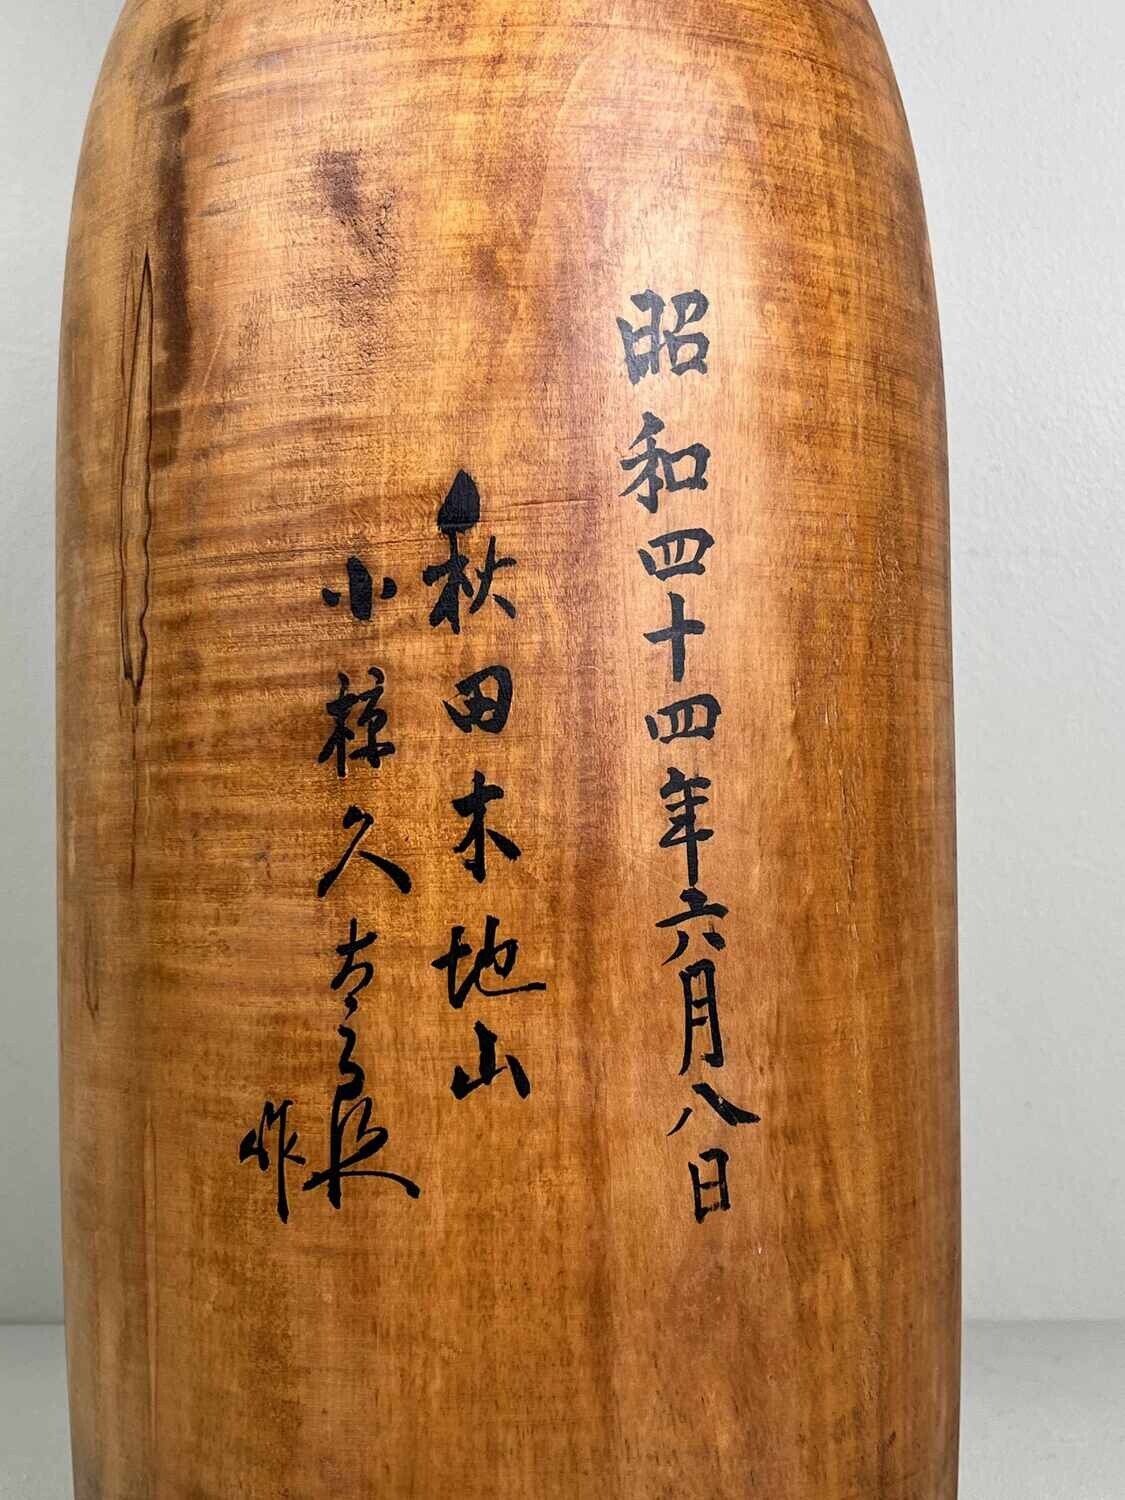 昭和四十四年六月八日
秋田木地山
小椋久太郎作